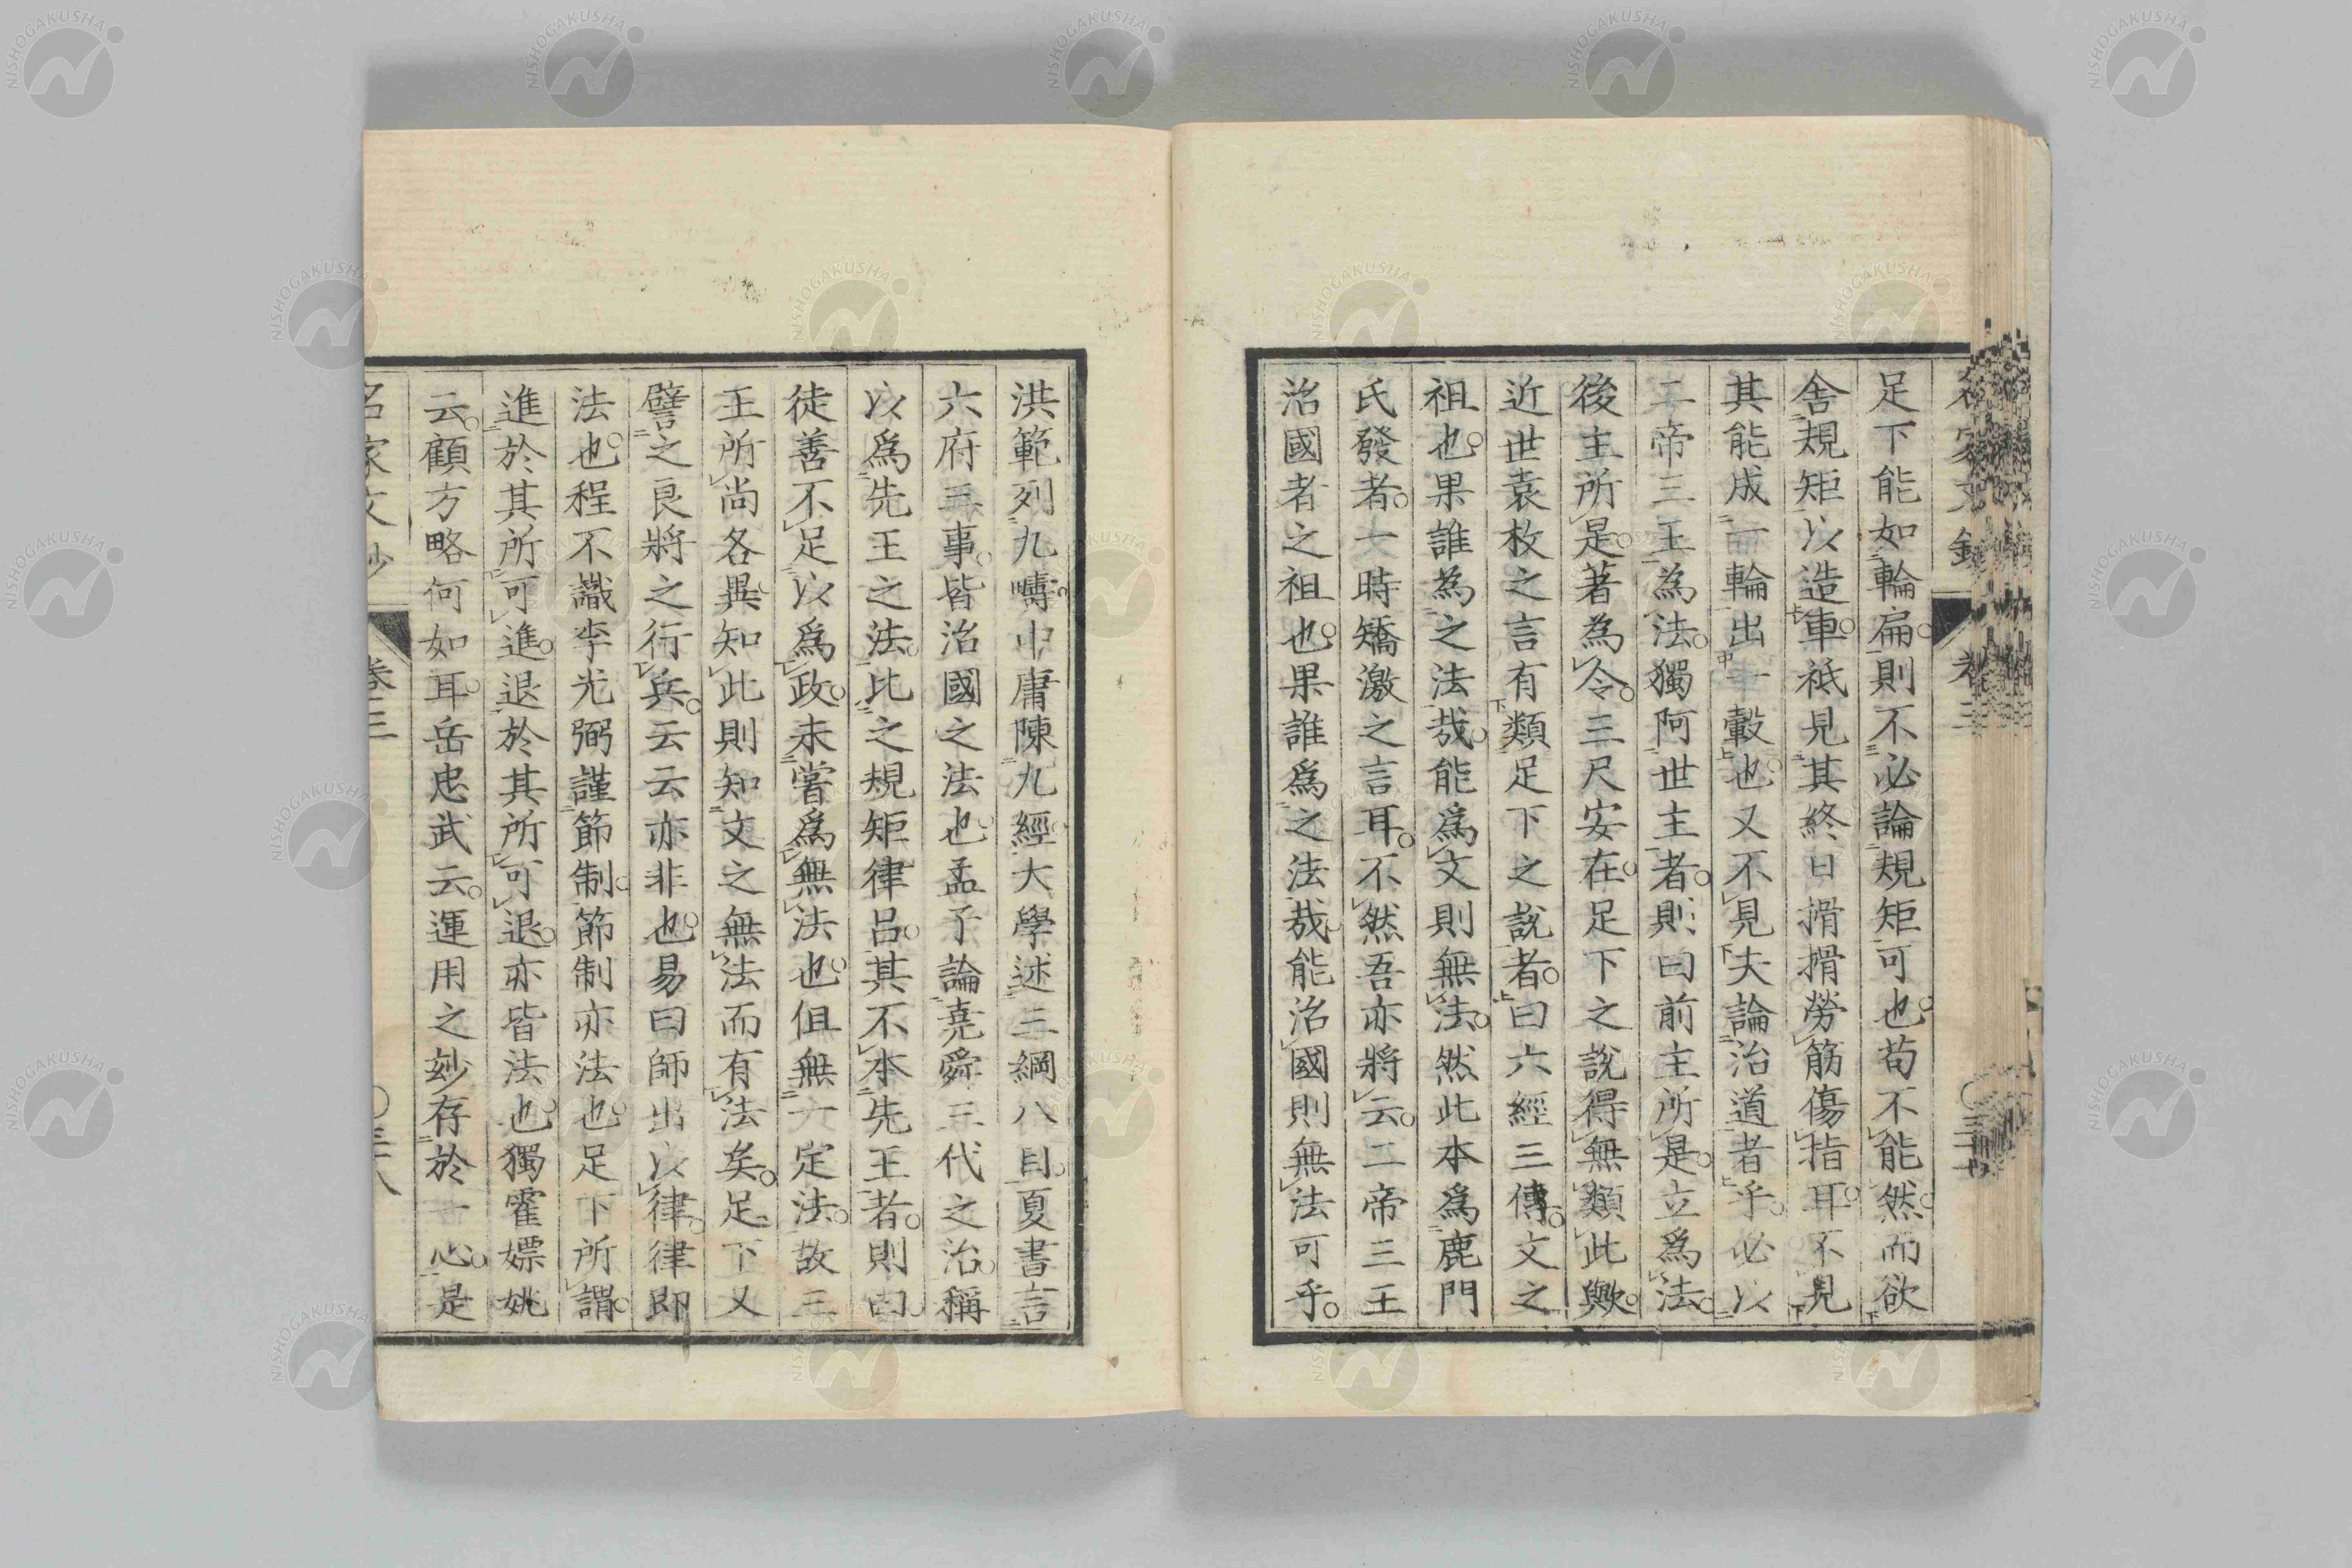 足下能如輪扁則不必論規矩可也苟不能然而欲
舍規矩以造車祇見其終日搰搰勞筋傷指耳不見
其能成一輪出一轂也又不見夫論治道者乎必以
二帝三王為法獨阿世主者則曰前主所是立爲法
後主所是著為令三尺安在足下之說得無類此歟
近世袁枚之言有類足下之說者曰六經三傳文之
祖也果誰為之法哉能爲文則無法然此本爲鹿門
氏發者一時矯激之言耳不然吾亦將云二帝三王
治國者之祖也果誰爲之法哉能治國則無法可乎
洪範列九疇中庸陳九經大學述三綱八目夏書言
六府三事皆治國之法也孟子論堯舜三代之治稱
以爲先王之法比之規矩律呂其不本先王者則曰
徒善不足以爲政未嘗爲無法也但無一定法故三
王所尚各異知此則知文之無法而有法矣足下又
譬之良將之行兵云云亦非也易曰師出以律律即
法也程不識李光弼謹節制節制亦法也足下所謂
進於其所可進退於其所可退亦皆法也獨霍嫖姚
云顧方略何如耳岳忠武云運用之妙存於一心是
名家文鈔 卷三 三十八
NISHOGAKUSHA